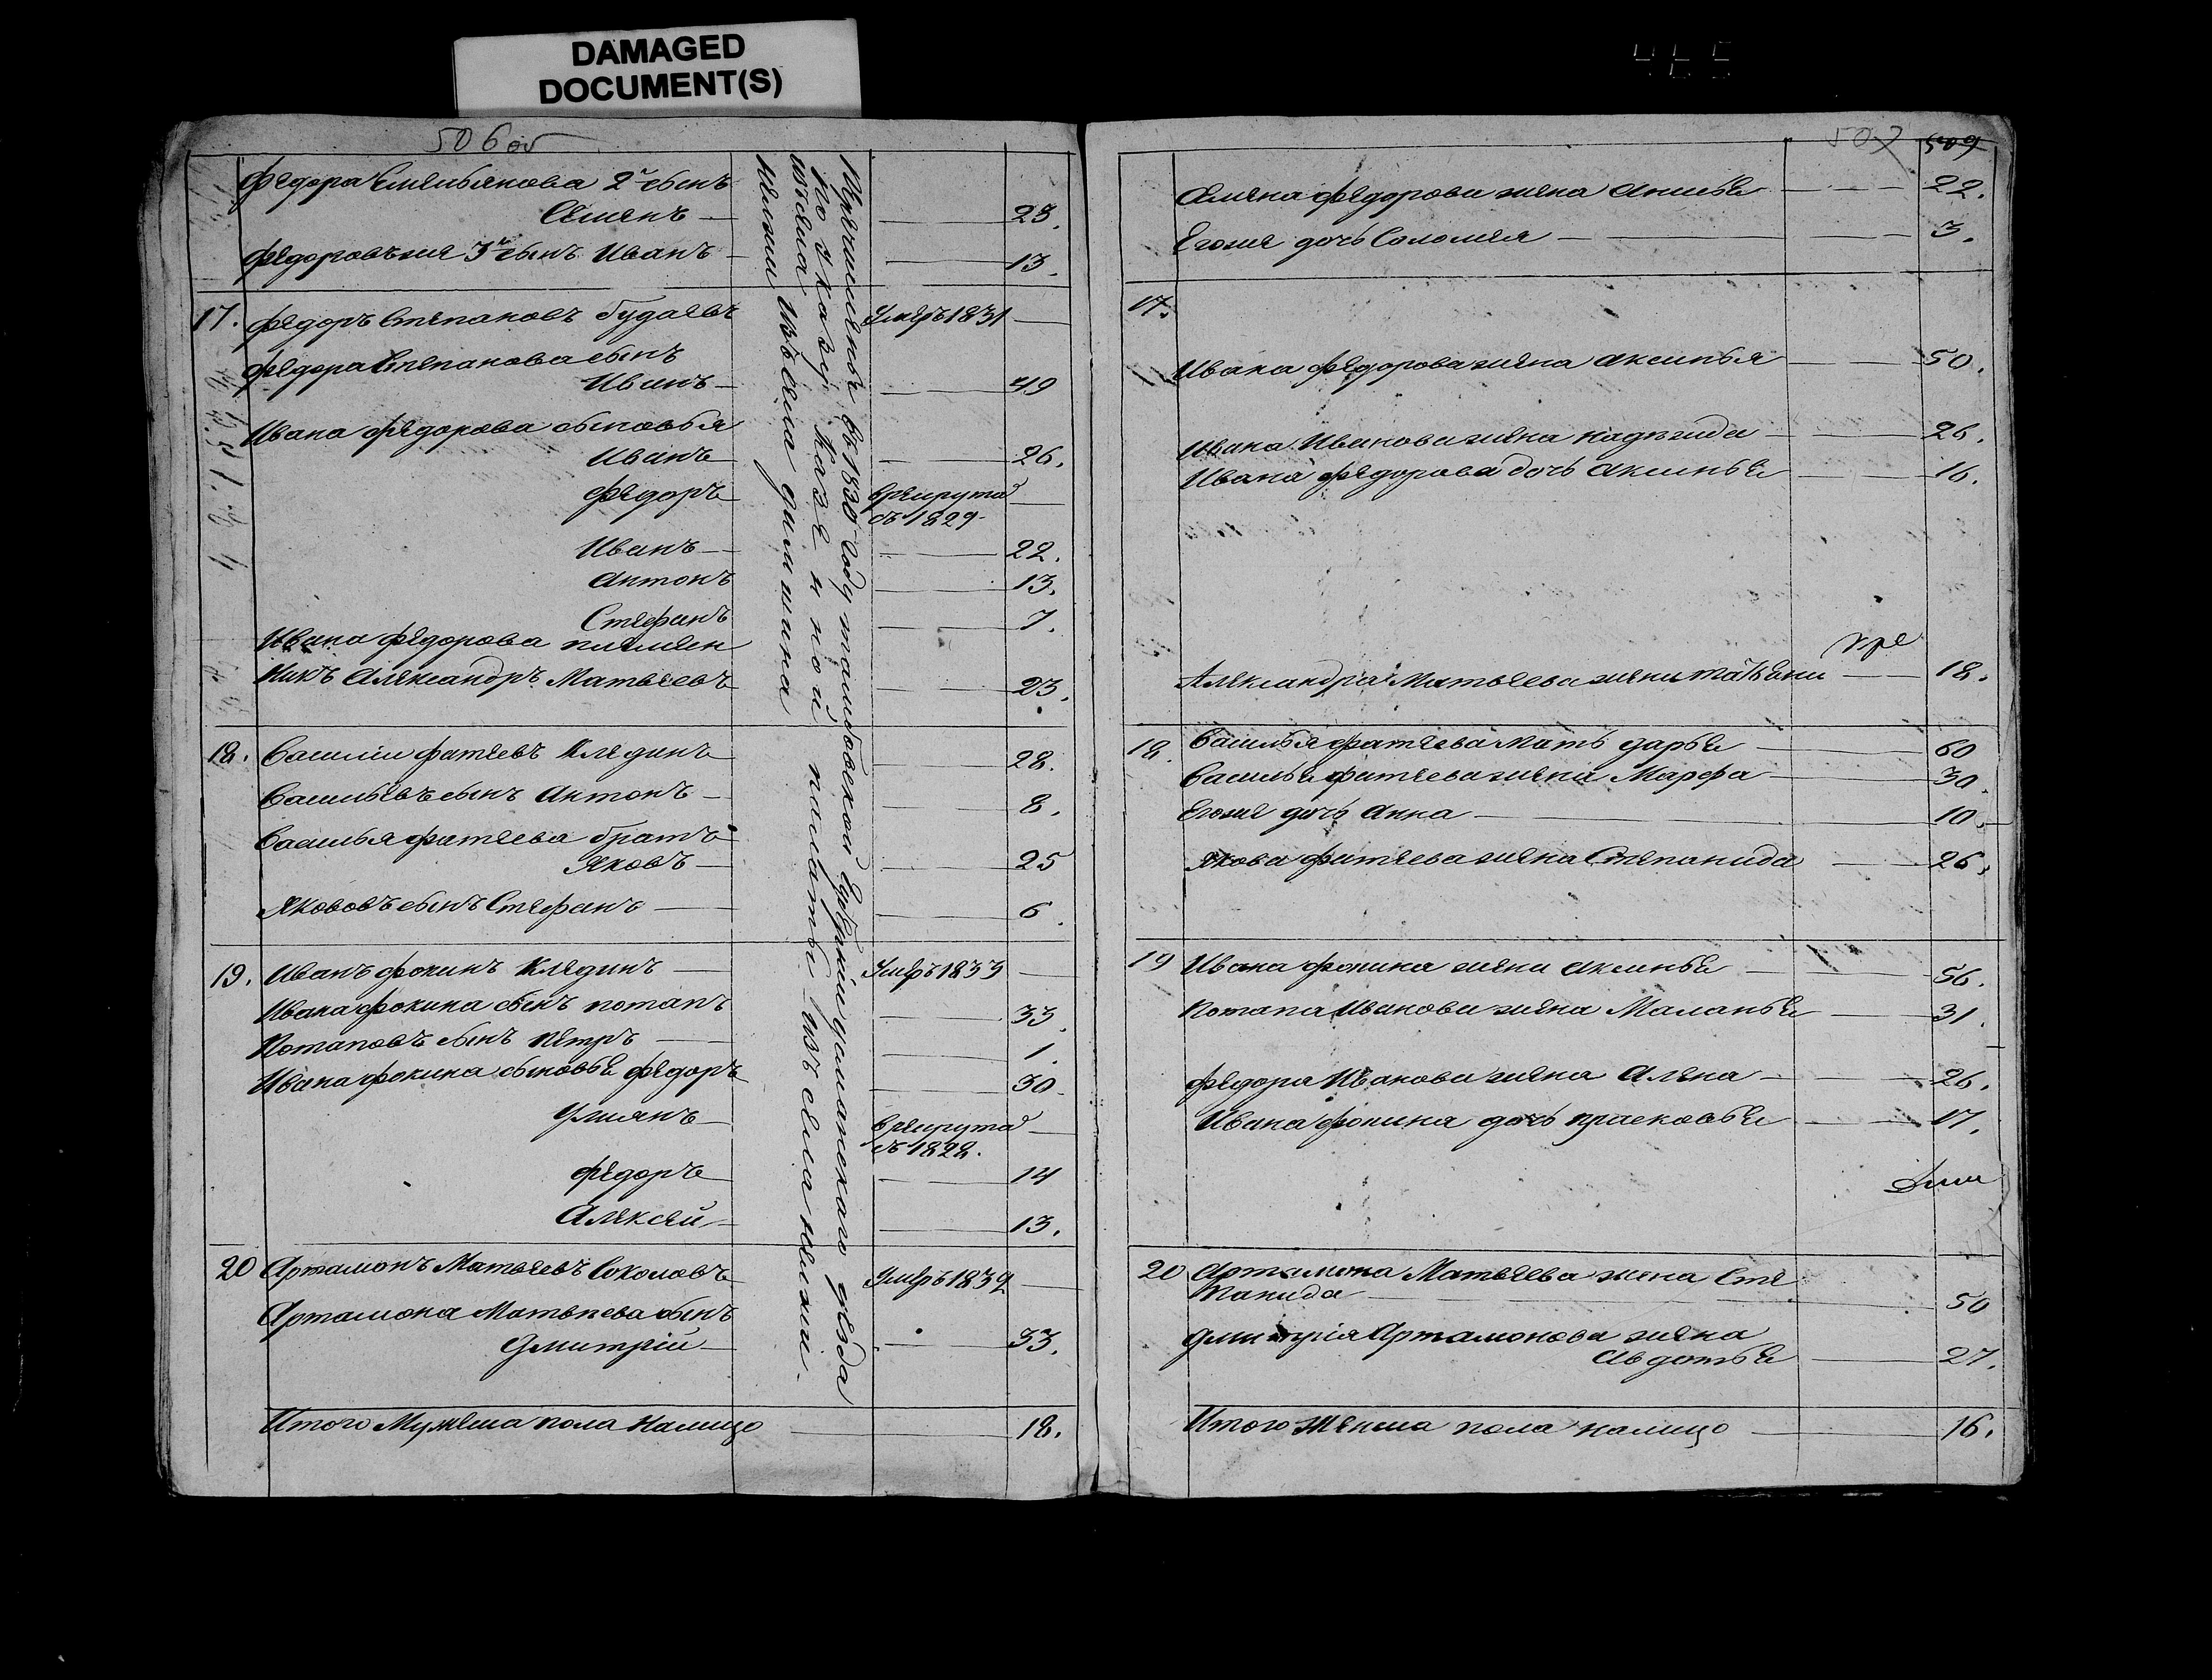 DAMAGED
DOCUMENT(S)
465
506 об
Федора Емельянова 2й сынъ
Семенъ 23.
Федоровъ же 3й сынъ Иванъ 13.
17. Федоръ Степановъ Будаевъ Умеръ 1831
Федора Степанова сынъ
Иванъ 49
Ивана Федорова сыновья
Иванъ 26.
Федоръ в рекрута
съ 1829
Иванъ 22.
Антонъ 13.
Стефанъ 7.
Ивана Федорова племен
никъ Александръ Матвеевъ 23.
18. Василiи Фатеевъ Клединъ 28.
Васильевъ сынъ Антонъ 8.
Василья Фатеева братъ
Яковъ 25
Якововъ сынъ Стефанъ 6.
19. Иванъ Фокинъ Клединъ Умеръ 1833
Ивана Фокина сынъ Потапъ 33.
Потаповъ сынъ Петръ 1.
Ивана Фокина сыновье Федоръ 30.
Ѳмиянъ в рекрута
съ 1828.
Федоръ 14
Алексей 13.
20 Артамонъ Матвеевъ Соколовъ Умеръ 1832
Артамона Матвеева сынъ
Дмитрiи 33.
Итого Мужеска пола налицо 18.
въ 1830 году тамбовской Губернiи усманскаго уезда
по указу казенной палаты изъ села
изъ села
507
509
Семена Федорова жена Анисье 22.
Егоже дочь Соломея 3.
17.
Ивана Федорова жена Аксинья 50.
Ивана Иванова жена Надежида 26.
Ивана Федорова дочь Аксинье 16.
Александра Матвеева жена Татьяна 18.
18. Василья Фатеева мать Дарье 60
Василье Фатеева жена Марфа 30.
Егоже дочь Анна 10.
Якова Фатеева жена Степанида 26.
19 Ивана Фокина жена Аксинье 56.
Потапа Иванова жена Маланье 31.
Федора Иванова жена Алена 26.
Ивана Фокина дочь Прасковье 17.
20 Артамона Матвеева жена Сте
панида 50
Дмитрiя Артамонова жена
Авдотье 27.
Итого Женска пола налицо 16.